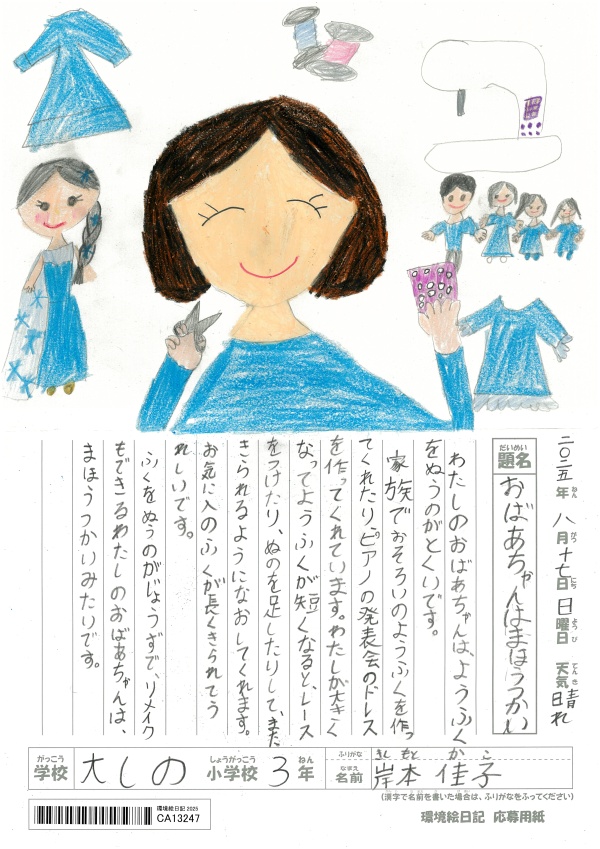 二〇二五年 八月十七日 日曜日 天気 晴れ
ねん がつ にち ようび てんき
だいめい
題名 おばあちゃんはまほうつかい
わたしのおばあちゃんは、ようふく
をぬうのがとくいです。
家族でおそろいのようふくを作っ
てくれたり、ピアノの発表会のドレス
を作ってくれています。わたしが大きく
なってようふくが短くなると、レース
をつけたり、ぬのを足したりして、また
きられるようになおしてくれます。
お気に入のふくが長くきられてう
れしいです。
ふくをぬうのがじょうずで、リメイク
もできるわたしのおばあちゃんは、
まほうつかいみたいです。
がっこう しょうがっこう ねん ふりがな きし もと か こ
学校 大しの 小学校 3年 なまえ 名前 岸本 佳子
(漢字で名前を書いた場合は、ふりがなをふってください)
環境絵日記 2025
CA13247
環境絵日記 応募用紙